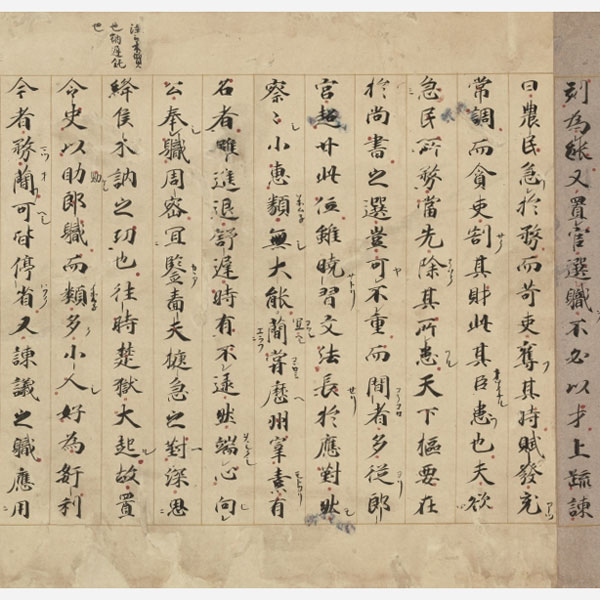 刻為能又置官選職不必以才上疏諫
曰農民急於務而苛吏奪其時賦發充
常調而貪吏割其財此其巨患也夫欲
急民所務當先除其所患天下樞要在
於尚書之選豈可不重而間者多從郎
官超升此位雖曉習文法長於應對然
察〻小惠類無大能簡嘗歷州宰素有
名者雖進退舒遲時有不逮然端心向
公奉職周密宜鑒嗇夫捷急之對深思
絳侯木訥之功也往時楚獄大起故置
令史以助郎職而類多小人好為姧利
今者務簡可皆停省又諫議之職應用